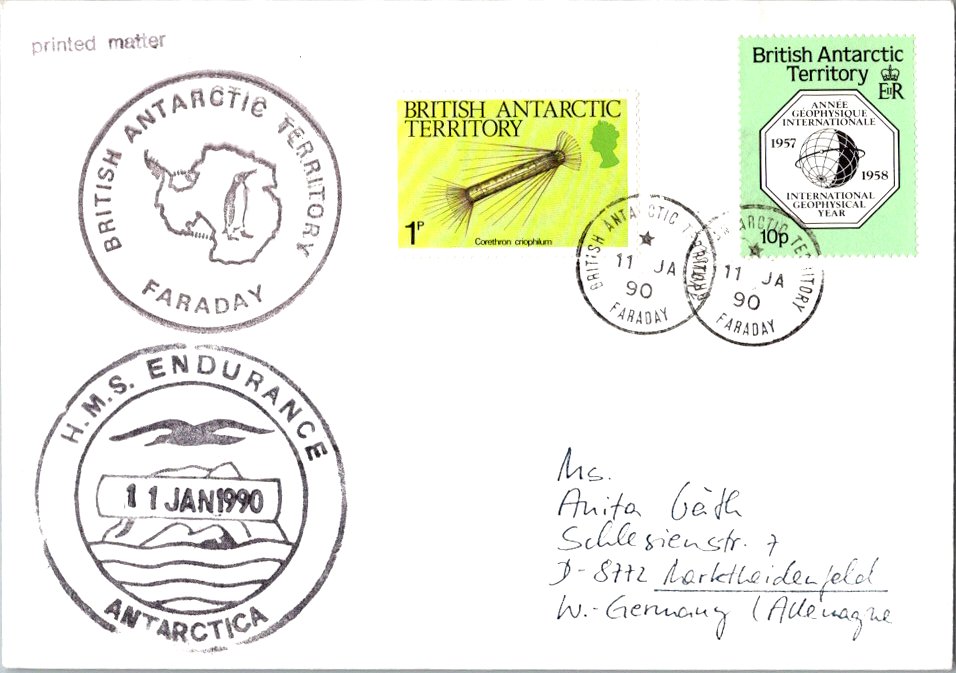 printed matter
BRITISH ANTARCTIC TERRITORY
FARADAY
BRITISH ANTARCTIC
TERRITORY
1P
Corethron criophilum
British Antarctic
Territory
EIIR
ANNÉE
GÉOPHYSIQUE
INTERNATIONALE
1957
1958
INTERNATIONAL
GEOPHYSICAL
YEAR
10p
BRITISH ANTARCTIC TERRITORY
11 JA
90
FARADAY
BRITISH ANTARCTIC TERRITORY
11 JA
90
FARADAY
H.M.S. ENDURANCE
11 JAN 1990
ANTARCTICA
Ms.
Anita
Schlesienstr. 7
D-8772 Marktheidenfeld
W.-Germany (Allemagne